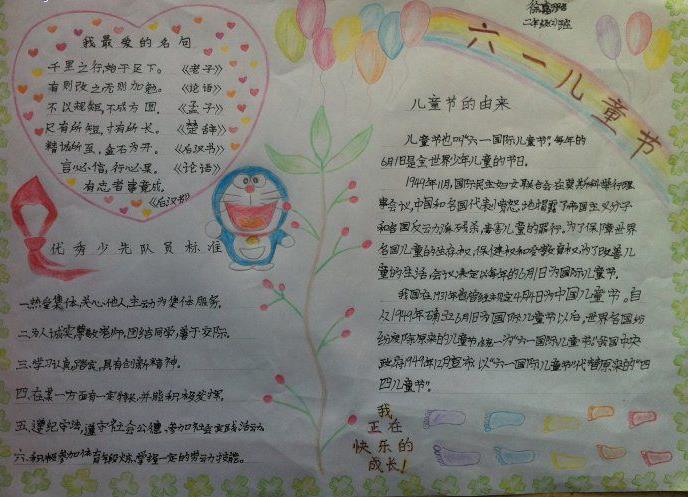 徐嘉
二年级(2)班
六一儿童节
我最爱的名句
千里之行,始于足下。《老子》
有则改之,无则加勉。《论语》
不以规矩,不成方圆。《孟子》
尺有所短,寸有所长。《楚辞》
精诚所至,金石为开。《后汉书》
言必信,行必果。《论语》
有志者事竟成。
《后汉书》
优秀少先队员标准
一.热爱集体,关心他人,主动为集体服务。
二.为人诚实,尊敬老师,团结同学,善于交际。
三.学习认真,踏实,具有创新精神。
四.在某一方面有一定特长,并能积极发挥。
五.遵纪守法,遵守社会公德,参加社会实践活动
六.积极参加体育锻炼,掌握一定的劳动技能。
儿童节的由来
儿童节也叫“六一国际儿童节”,每年的
6月1日是全世界少年儿童的节日。
1949年11月,国际民主妇女联合会在莫斯科举行理
事会议,中国和各国代表愤怒地揭露了帝国主义分子
和各国反动派残杀、毒害儿童的罪行。为了保障世界
各国儿童的生存权,保健权和受教育权,为了改善儿
童的生活,会议决定以每年的6月1日为国际儿童节。
我国在1931年曾规定4月4日为中国儿童节。自
从1949年确立6月1日为国际儿童节以后,世界各国纷
纷废除原来的儿童节,统一为“六一国际儿童节”我国中央
政府1949年12月宣布,以“六一国际儿童节”代替原来的“四
四儿童节”。
我
正在
快乐的
成长!